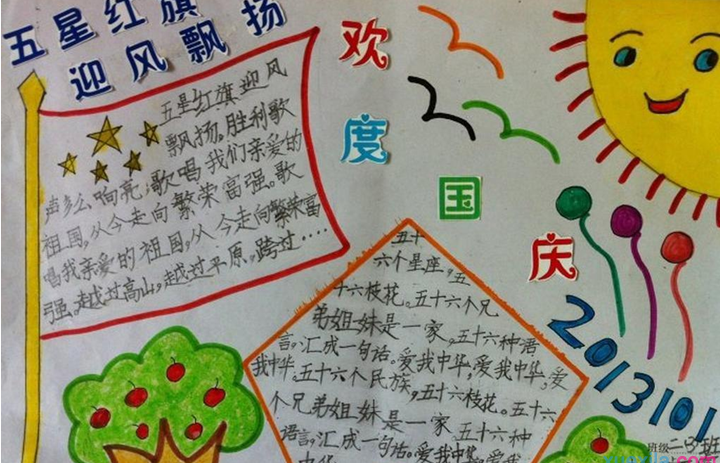 五星红旗
迎风飘扬
欢度国庆
五星红旗迎风
飘扬,胜利歌
声多么响亮;歌唱我们亲爱的
祖国,从今走向繁荣富强。歌
唱我亲爱的祖国,从今走向繁荣富
强。越过高山,越过平原,跨过……
五十
六个星座,五
十六枝花。五十六个兄
弟姐妹是一家,五十六种语
言,汇成一句话。爱我中华,爱我中华,爱
我中华。五十六个民族,五十六枝花。五十六
个兄弟姐妹是一家五十六种
语言,汇成一句话。爱我中华
2013101
班级二8班